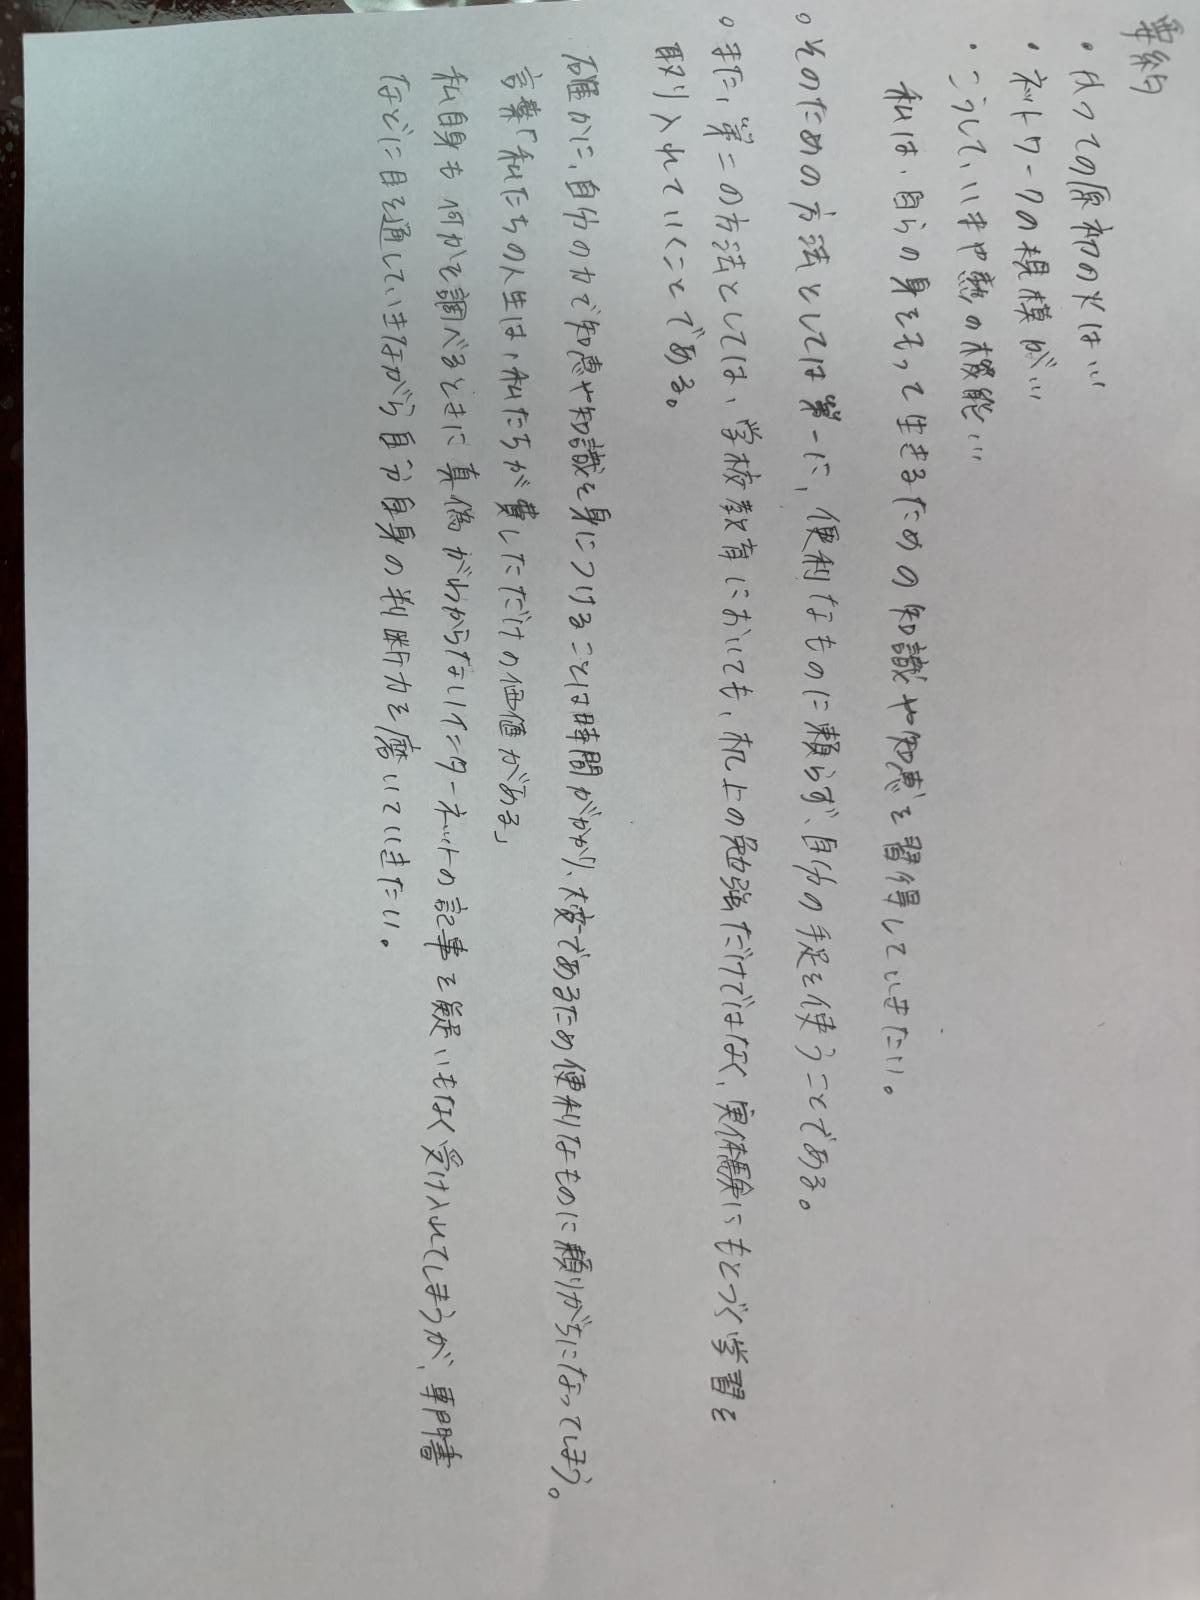 要約
・かつての原初の火は…
・ネットワークの規模が…
・こうして、いまや熱の機能…
私は、自らの身をもって生きるための知識や知恵を習得していきたい。
。そのための方法としては第一に、便利なものに頼らず、自分の手足を使うことである。
。また、第二の方法としては、学校教育においても、机上の勉強だけではなく、実体験にもとづく学習を
取り入れていくことである。
確かに、自分の力で知恵や知識を身につけることは時間がかかり、大変であるため便利なものに頼りがちになってしまう。
言葉「私たちの人生は、私たちが費しただけの価値がある」
私自身も何かを調べるときに真偽がわからないインターネットの記事を疑いもなく受け入れてしまうが、専門書
などに目を通していきながら自分自身の判断力を磨いていきたい。